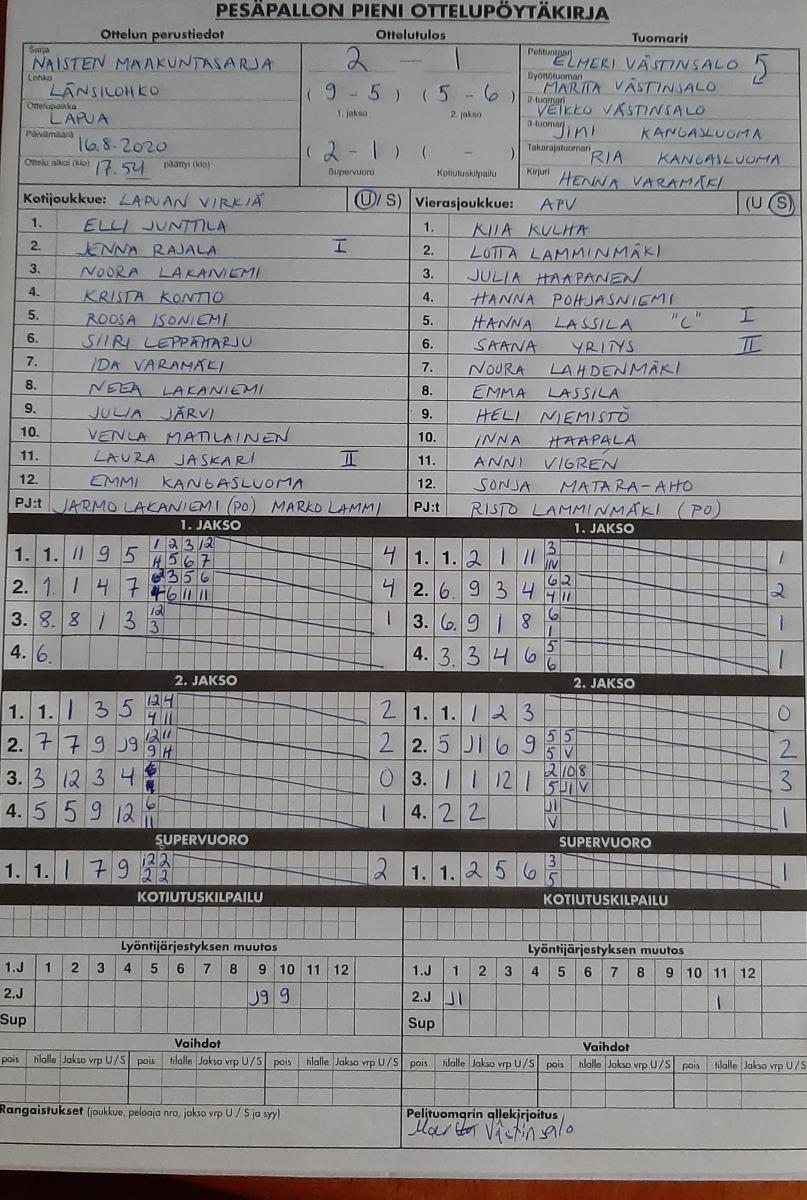 PESÄPALLON PIENI OTTELUPÖYTÄKIRJA
Ottelun perustiedot
Sarja
NAISTEN MAAKUNTASARJA
Lohko
LÄNSILOHKO
Ottelupaikka
LAPUA
Päivämäärä
16.8-2020
Ottelu alkoi (klo) 17.54 päättyi (klo)
Ottelutulos
2 - 1
(9 - 5) (5 - 6)
1. jakso 2. jakso
(2 - 1) ( - )
Supervuoro Kotiutuskilpailu
Tuomarit
Pelituomari ELMERI VÄSTINSALO
Syöttötuomari MARITA VÄSTINSALO
2-tuomari VEIKKO VÄSTINSALO
3-tuomari JIMI KANGASLUOMA
Takarajatuomari RIA KANGASLUOMA
Kirjuri HENNA VARAMÄKI
Kotijoukkue: LAPUAN VIRKIÄ (U/S)
1. ELLI JUNTTILA
2. JENNA RAJALA I
3. NOORA LAKANIEMI
4. KRISTA KONTIO
5. ROOSA ISONIEMI
6. SIIRI LEPPÄHARJU
7. IDA VARAMÄKI
8. NEEA LAKANIEMI
9. JULIA JÄRVI
10. VENLA MATILAINEN
11. LAURA JASKARI II
12. EMMI KANGASLUOMA
PJ:t JARMO LAKANIEMI (PO) MARKO LAMMI
Vierasjoukkue: APV (U S)
1. KIIA KULHA
2. LOTTA LAMMINMÄKI
3. JULIA HAAPANEN
4. HANNA POHJASNIEMI
5. HANNA LASSILA "C" I
6. SAANA YRITYS II
7. NOORA LAHDENMÄKI
8. EMMA LASSILA
9. HELI NIEMISTÖ
10. INNA HAAPALA
11. ANNI VIGREN
12. SONJA MATARA-AHO
PJ:t RISTO LAMMINMÄKI (PO)
1. JAKSO
1. 1. 11 9 5 1 2 3 12 4
H 5 6 7
2. 1. 1 4 7 3 5 6 4
6 11 11
3. 8. 8 1 3 12 1
3
4. 6.
1. JAKSO
1. 1. 2 1 11 3 1
2. 6. 9 3 4 6 2 2
4 11
3. 6. 9 1 8 6 1
1
4. 3. 3 4 6 5 1
6
2. JAKSO
1. 1. 1 3 5 12 4 2
4 11
2. 7 7 9 J9 12 11 2
9 H
3. 3 12 3 4 0
4. 5 5 9 12 6 1
11
2. JAKSO
1. 1. 1 2 3 0
2. 5 J1 6 9 5 5 2
5 V
3. 1 1 12 1 2 10 8 3
5 J1 V
4. 2 2 J1 1
V
SUPERVUORO
1. 1. 1 7 9 12 2 2
2 2
SUPERVUORO
1. 1. 2 5 6 3 1
5
KOTIUTUSKILPAILU
KOTIUTUSKILPAILU
Lyöntijärjestyksen muutos
1.J 1 2 3 4 5 6 7 8 9 10 11 12
2.J J9 9
Sup
Lyöntijärjestyksen muutos
1.J 1 2 3 4 5 6 7 8 9 10 11 12
2.J J1 1
Sup
Vaihdot
pois tilalle Jakso vrp U/S pois tilalle Jakso vrp U/S pois tilalle Jakso vrp U/S
Vaihdot
pois tilalle Jakso vrp U/S pois tilalle Jakso vrp U/S pois tilalle Jakso vrp U/S
Rangaistukset (joukkue, pelaaja nro, jakso vrp U / S ja syy)
Pelituomarin allekirjoitus
Västinsalo